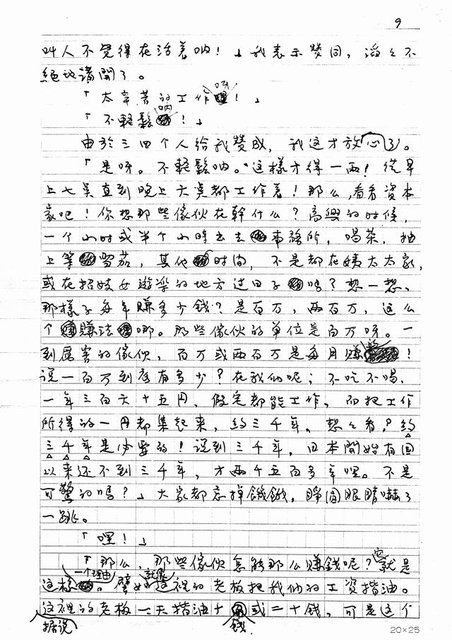 9
叫人不覺得在活着呐！」我表示赞同，滔々不
絕地講開了。
「太辛苦的工作呐！」
「不輕鬆呐！」
由於三四個人给我赞成，我這才放心了。
「是呀。不輕鬆呐。這樣才得一両！從早
上七点直到晚上六点都工作着！那么，看看資本
家吧！你想那些傢伙在幹什么？高興的时候，
一个小时或半个小时去去事務所，喝茶，抽
上等雪茄，其他时间，不是都在姨太太家，
或在招妓女遊樂的地方过日子嗎？想一想，
那樣子每年賺多少錢？是百万，両百万，这么
个賺法哪。那些傢伙的单位是百万呀。一
到厲害的傢伙，百万或両百万是每月賺！
说一百万到底有多少？在我们呢，不吃不喝，
一年三百六十五円，假定都能工作，而把工作
所得的一円都集起來，約三千年，想々看？約
三千年是必要的！说到三千年，日本開始有国
以来还不到三千年，才両千五百多年哩。不是
可驚的嗎？」大家都忘掉餓餓，睁圆眼睛嚇了
一跳。
「哩！」
「那么，那些傢伙怎能那么賺錢呢？就是
一个理由 就是
這樣。譬如這裡的老板把我们的工资揩油。
這裡的老板一天揩油十或二十錢，可是这个
據说 錢，
20×25